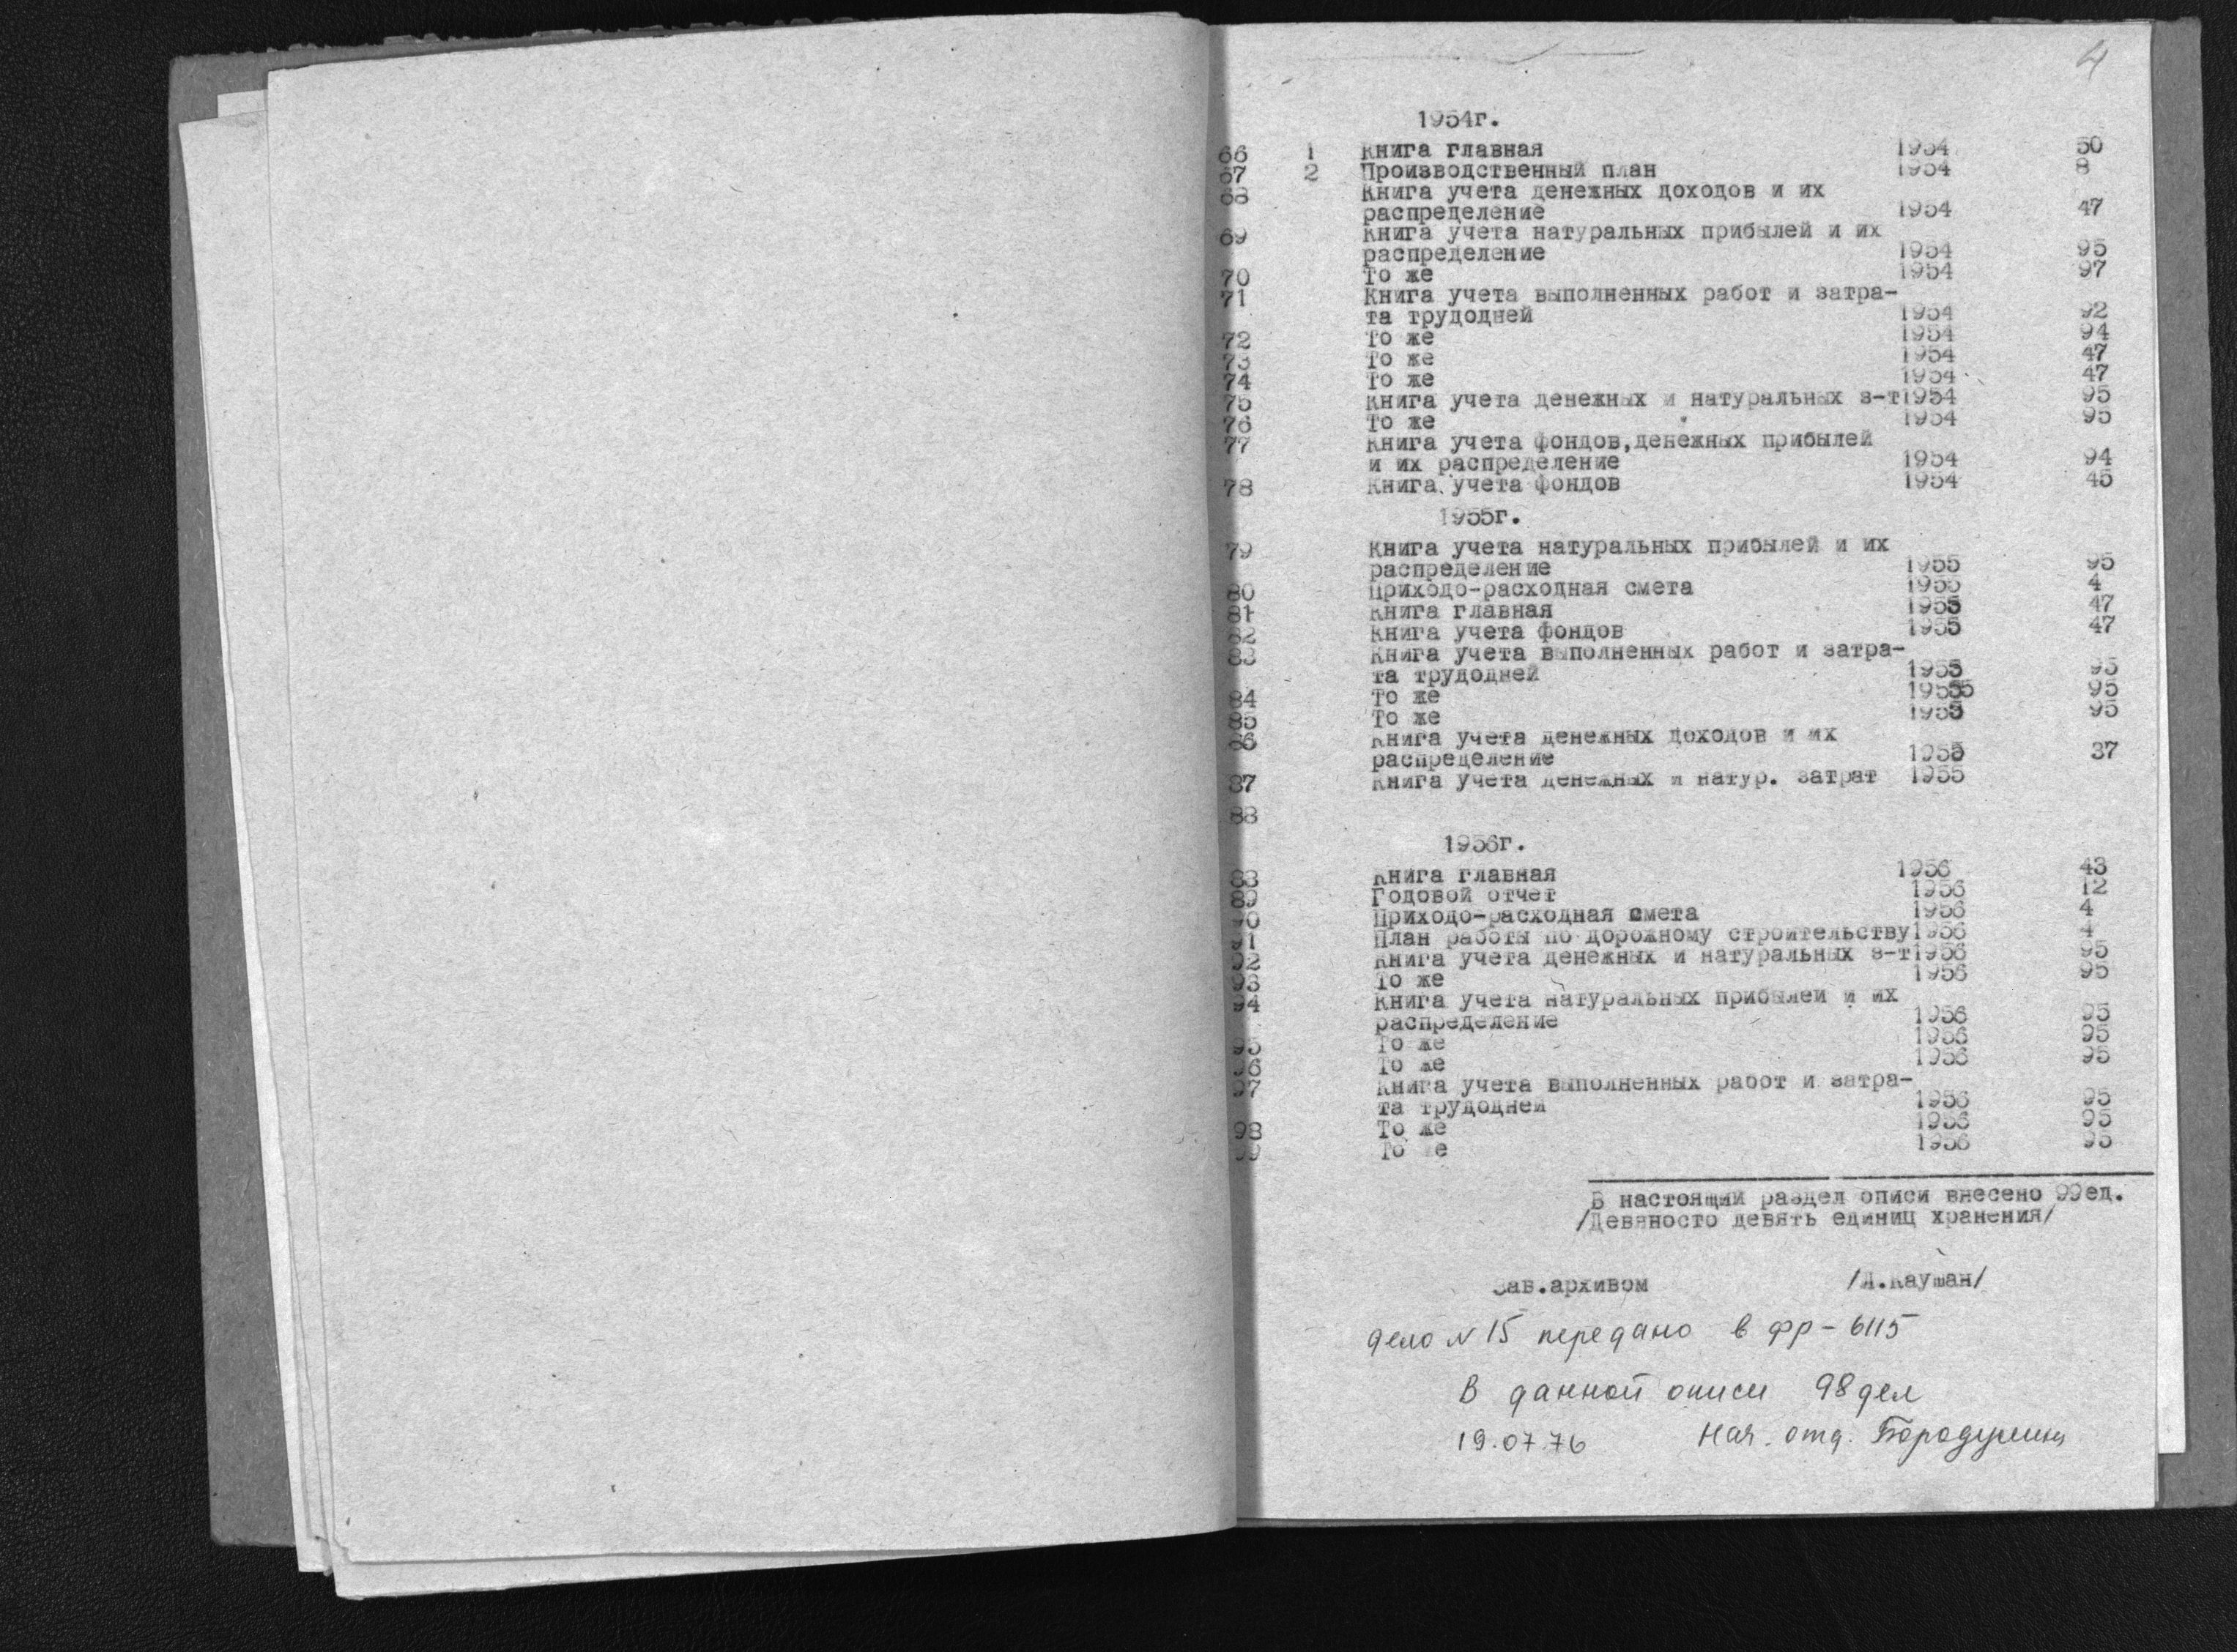 4
1954г.
66 1 Книга главная 1954 50
67 2 Производственный план 1954 8
68 Книга учета денежных доходов и их
распределение 1954 47
69 Книга учета натуральных прибылей и их
распределение 1954 95
70 То же 1954 97
71 Книга учета выполненных работ и затра-
та трудодней 1954 92
72 То же 1954 94
73 То же 1954 47
74 То же 1954 47
75 Книга учета денежных и натуральных з-т1954 95
76 То же 1954 95
77 Книга учета фондов,денежных прибылей
и их распределение 1954 94
78 Книга учета фондов 1954 45
1955г.
79 Книга учета натуральных прибылей и их
распределение 1955 95
80 Приходо-расходная смета 1955 4
81 Книга главная 1955 47
82 Книга учета фондов 1955 47
83 Книга учета выполненных работ и затра-
та трудодней 1955 95
84 То же 19555 95
85 То же 1955 95
86 Книга учета денежных доходов и их
распределение 1955 37
87 Книга учета денежных и натур. затрат 1955
88
1956г.
88 Книга главная 1956 43
89 Годовой отчет 1956 12
90 Приходо-расходная смета 1956 4
91 План работы по дорожному строительству1956 4
92 Книга учета денежных и натуральных з-т1956 95
93 То же 1956 95
94 Книга учета натуральных прибылей и их
распределение 1956 95
95 То же 1956 95
96 То же 1956 95
97 Книга учета выполненных работ и затра-
та трудодней 1956 95
98 То же 1956 95
99 То же 1956 95
В настоящий раздел описи внесено 99ед.
/Девяносто девять единиц хранения/
Зав.архивом /Л.Каушан/
дело N 15 передано в фр-6115
В данной описи 98 дел
19.07.76 Нач. отд.